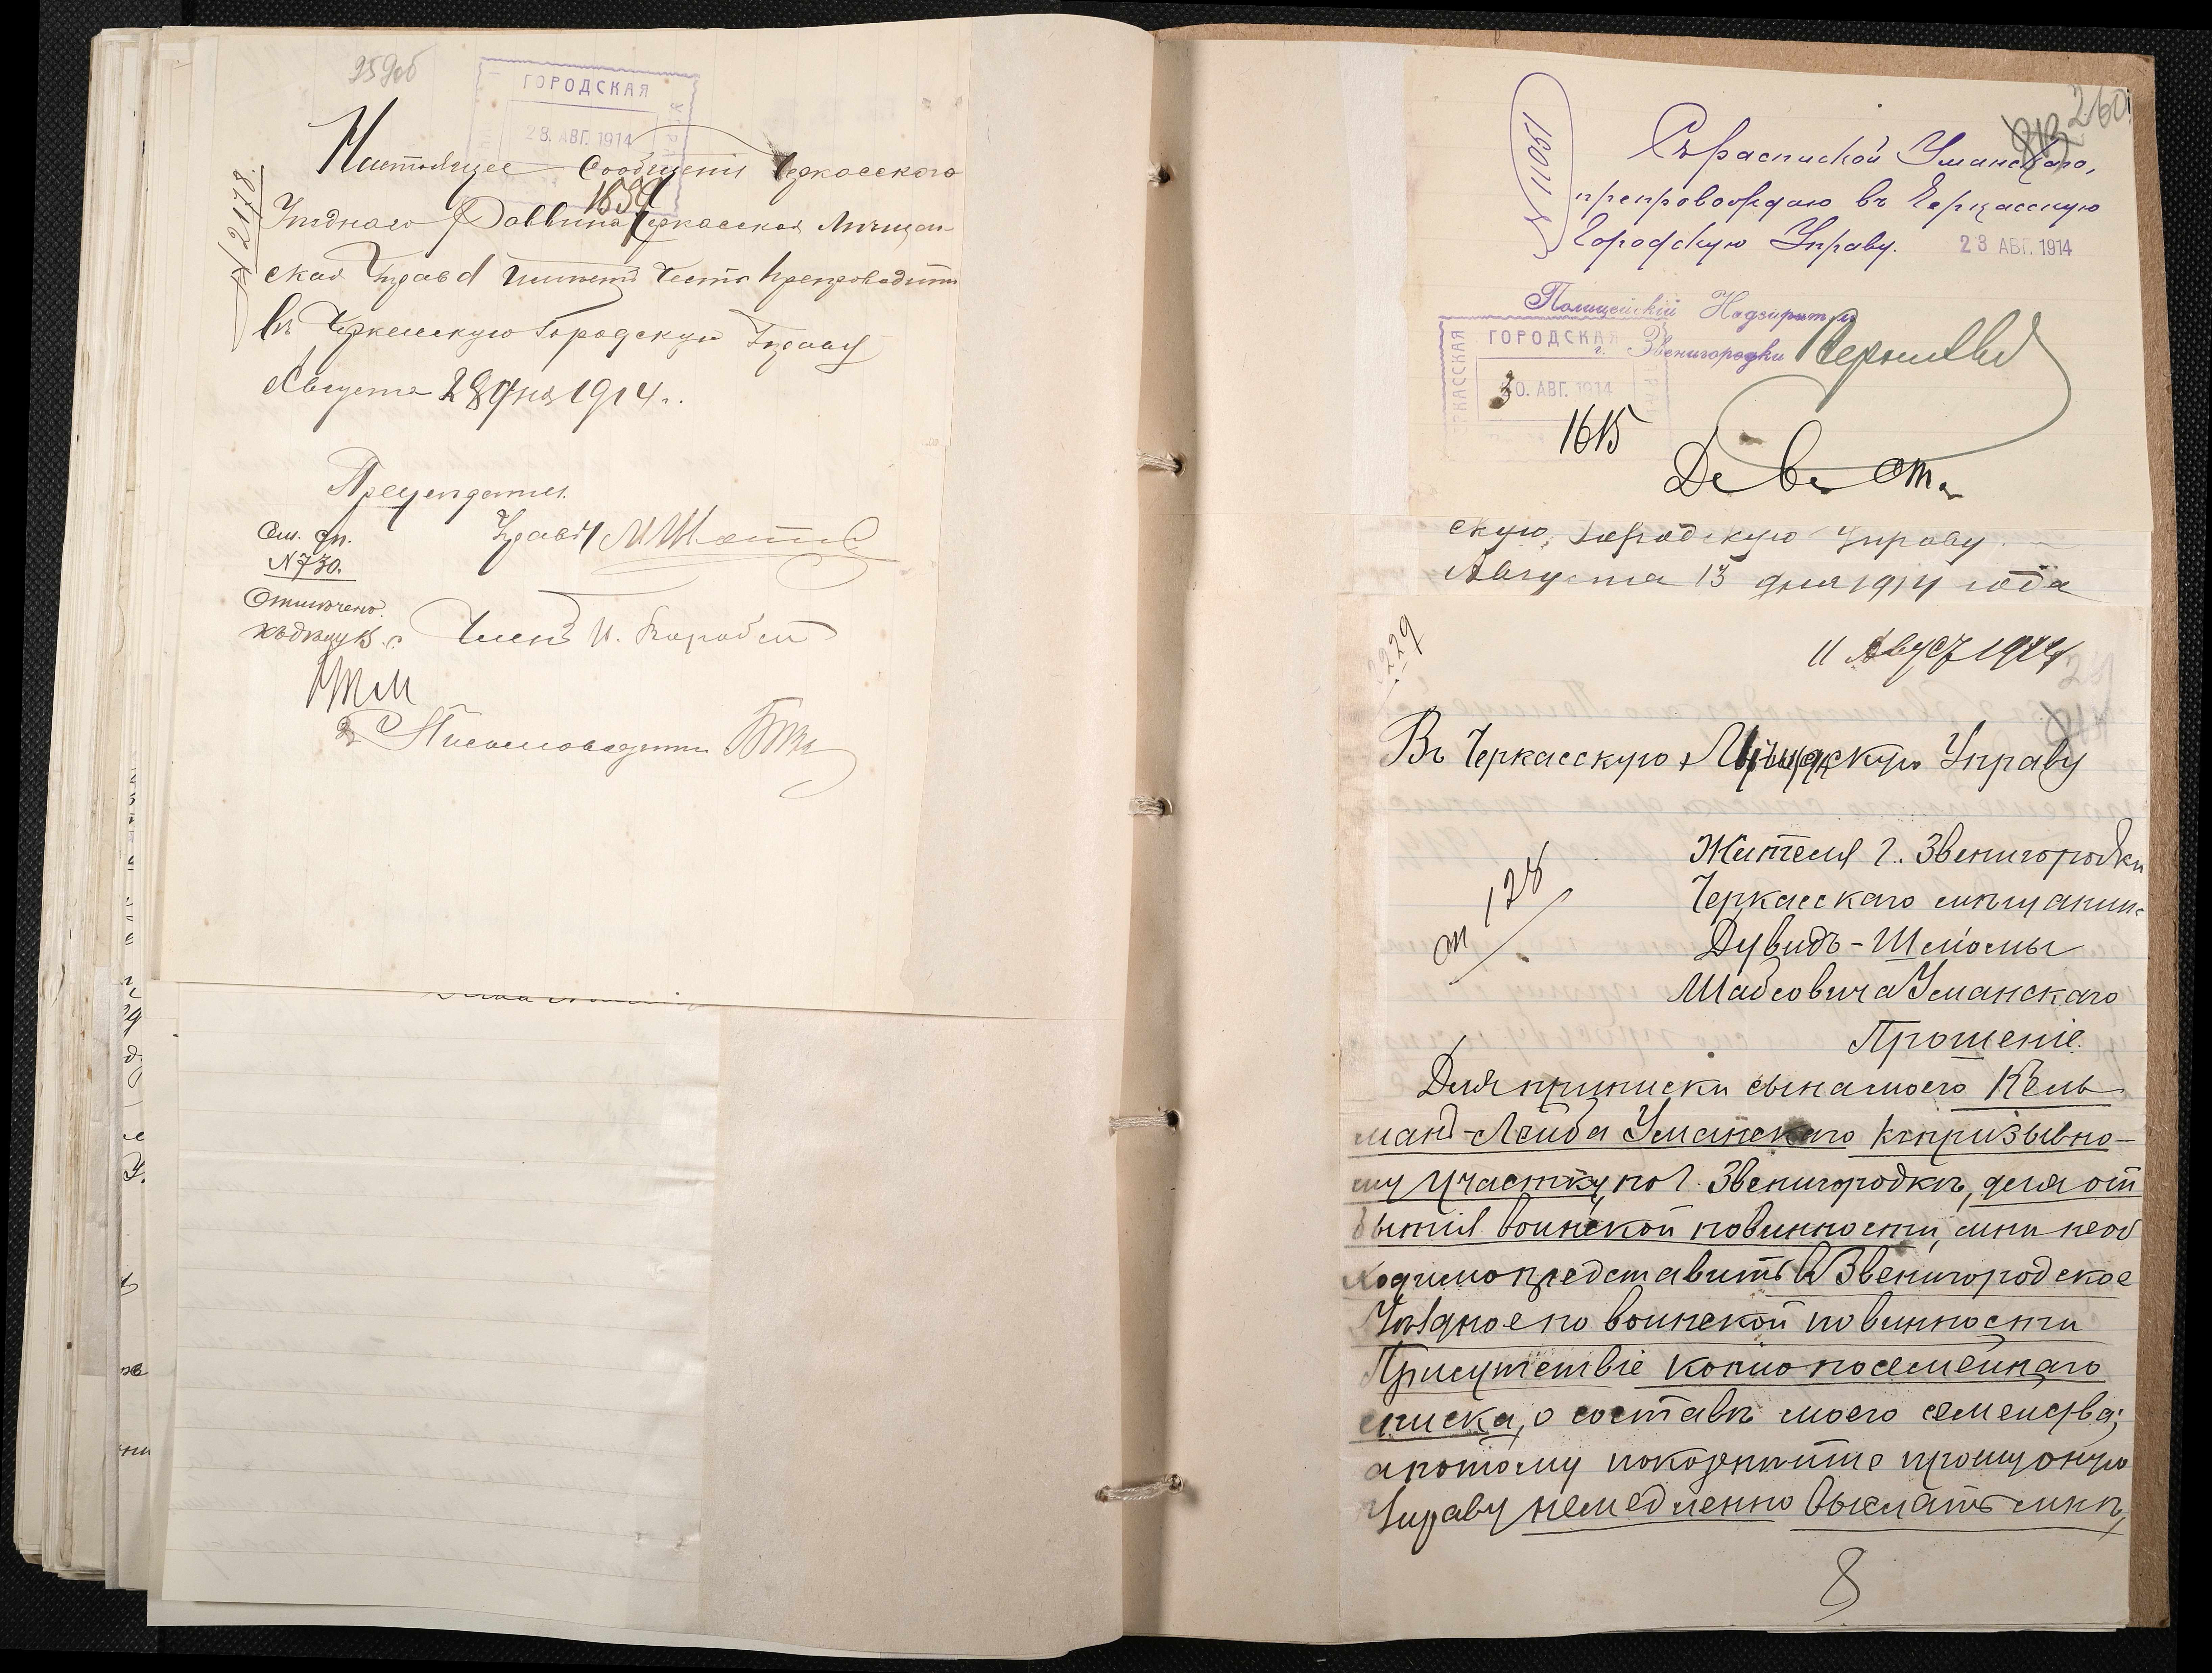 259об
ГОРОДСКАЯ
28. АВГ. 1914
1659
№ 2178.
Настоящее сообщенiе Черкасского
Уѣзднаго Раввина Черкасская Мѣщан-
ская Управа имѣетъ честь препроводить
въ Черкасскую Городскую Управу
Августа 28 дня 1914 г.
Предсѣдатель
Управы
См. вх.
№ 730.
Отмѣчено
Членъ И.
Письмоводитель
260
№ 11051
Съ распиской Уманскаго,
препровождаю въ Черкасскую
Городскую Управу. 23 АВГ. 1914
Полицейскiй Надзиратель
г. Звенигородки
ЧЕРКАССКАЯ
ГОРОДСКАЯ
30. АВГ. 1914
1615
скую Городскую Управу.
Августа 13 дня 1914 года
2229
11 Август 1914
Въ Черкасскую Мѣщанскую Управу
128
Жителя г. Звенигородки
Черкасскаго мѣщанина
Дувидъ-Шлiомы
Шабсовича Уманскаго
Прошенiе.
Для приписки сына моего Кель
манъ-Лейба Уманскаго къ призывно-
му участку по г. Звенигородкѣ, для от
бытiя воинской повинности, мнѣ необ
ходимо представить въ Звенигородское
Уѣздное по воинской повинности
Присутствiе копiю посемейнаго
списка, о составѣ моего семейства;
а потому покорнѣйше прошу оную
Управу немедленно выслать мнѣ,
8